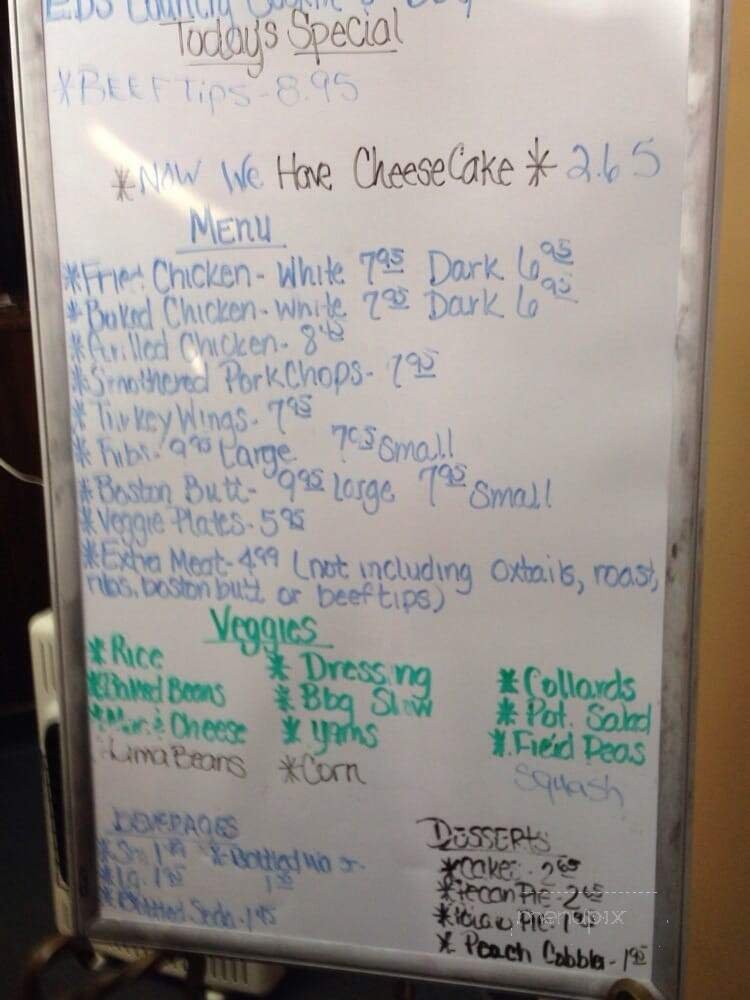 EDs Country Cookin
Today's Special
*BEEF Tips - 8.95
*NOW We Have CheeseCake * 2.65
MENU
*Fried Chicken - White 7.95 Dark 6.95
*Baked Chicken - White 7.95 Dark 6.95
*Grilled Chicken - 8.45
*Smothered PorkChops - 7.95
*Turkey Wings - 7.95
*Ribs - 9.95 Large 7.95 Small
*Boston Butt - 9.95 Large 7.95 Small
*Veggie Plates - 5.95
*Extra Meat - 4.99 (not including oxtails, roast,
ribs, boston butt or beef tips)
Veggies
*Rice *Dressing *Collards
*Baked Beans *Bbq Slaw *Pot. Salad
*Mac & Cheese *Yams *Field Peas
LimaBeans *Corn Squash
BEVERAGES
*Sm. *Bottled
*Lg.
*Bottled Soda
DESSERTS
*Cakes - 2.65
*Pecan Pie - 2.65
Pie -
* Peach Cobbler - 1.95
menupix